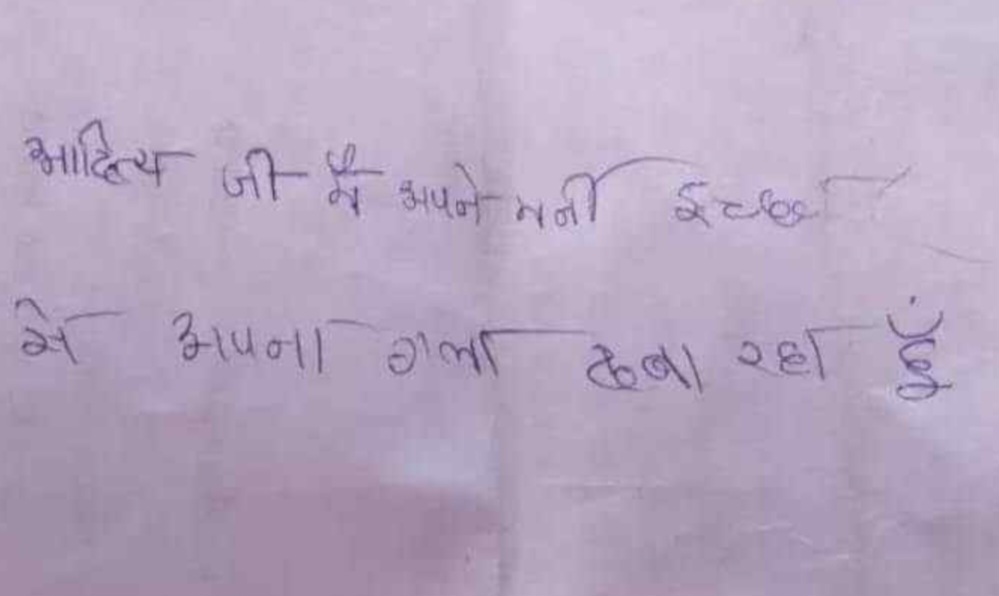 आदित्य जी मैं अपने मर्जी इच्छा
से अपना गला दबा रहा हूँ